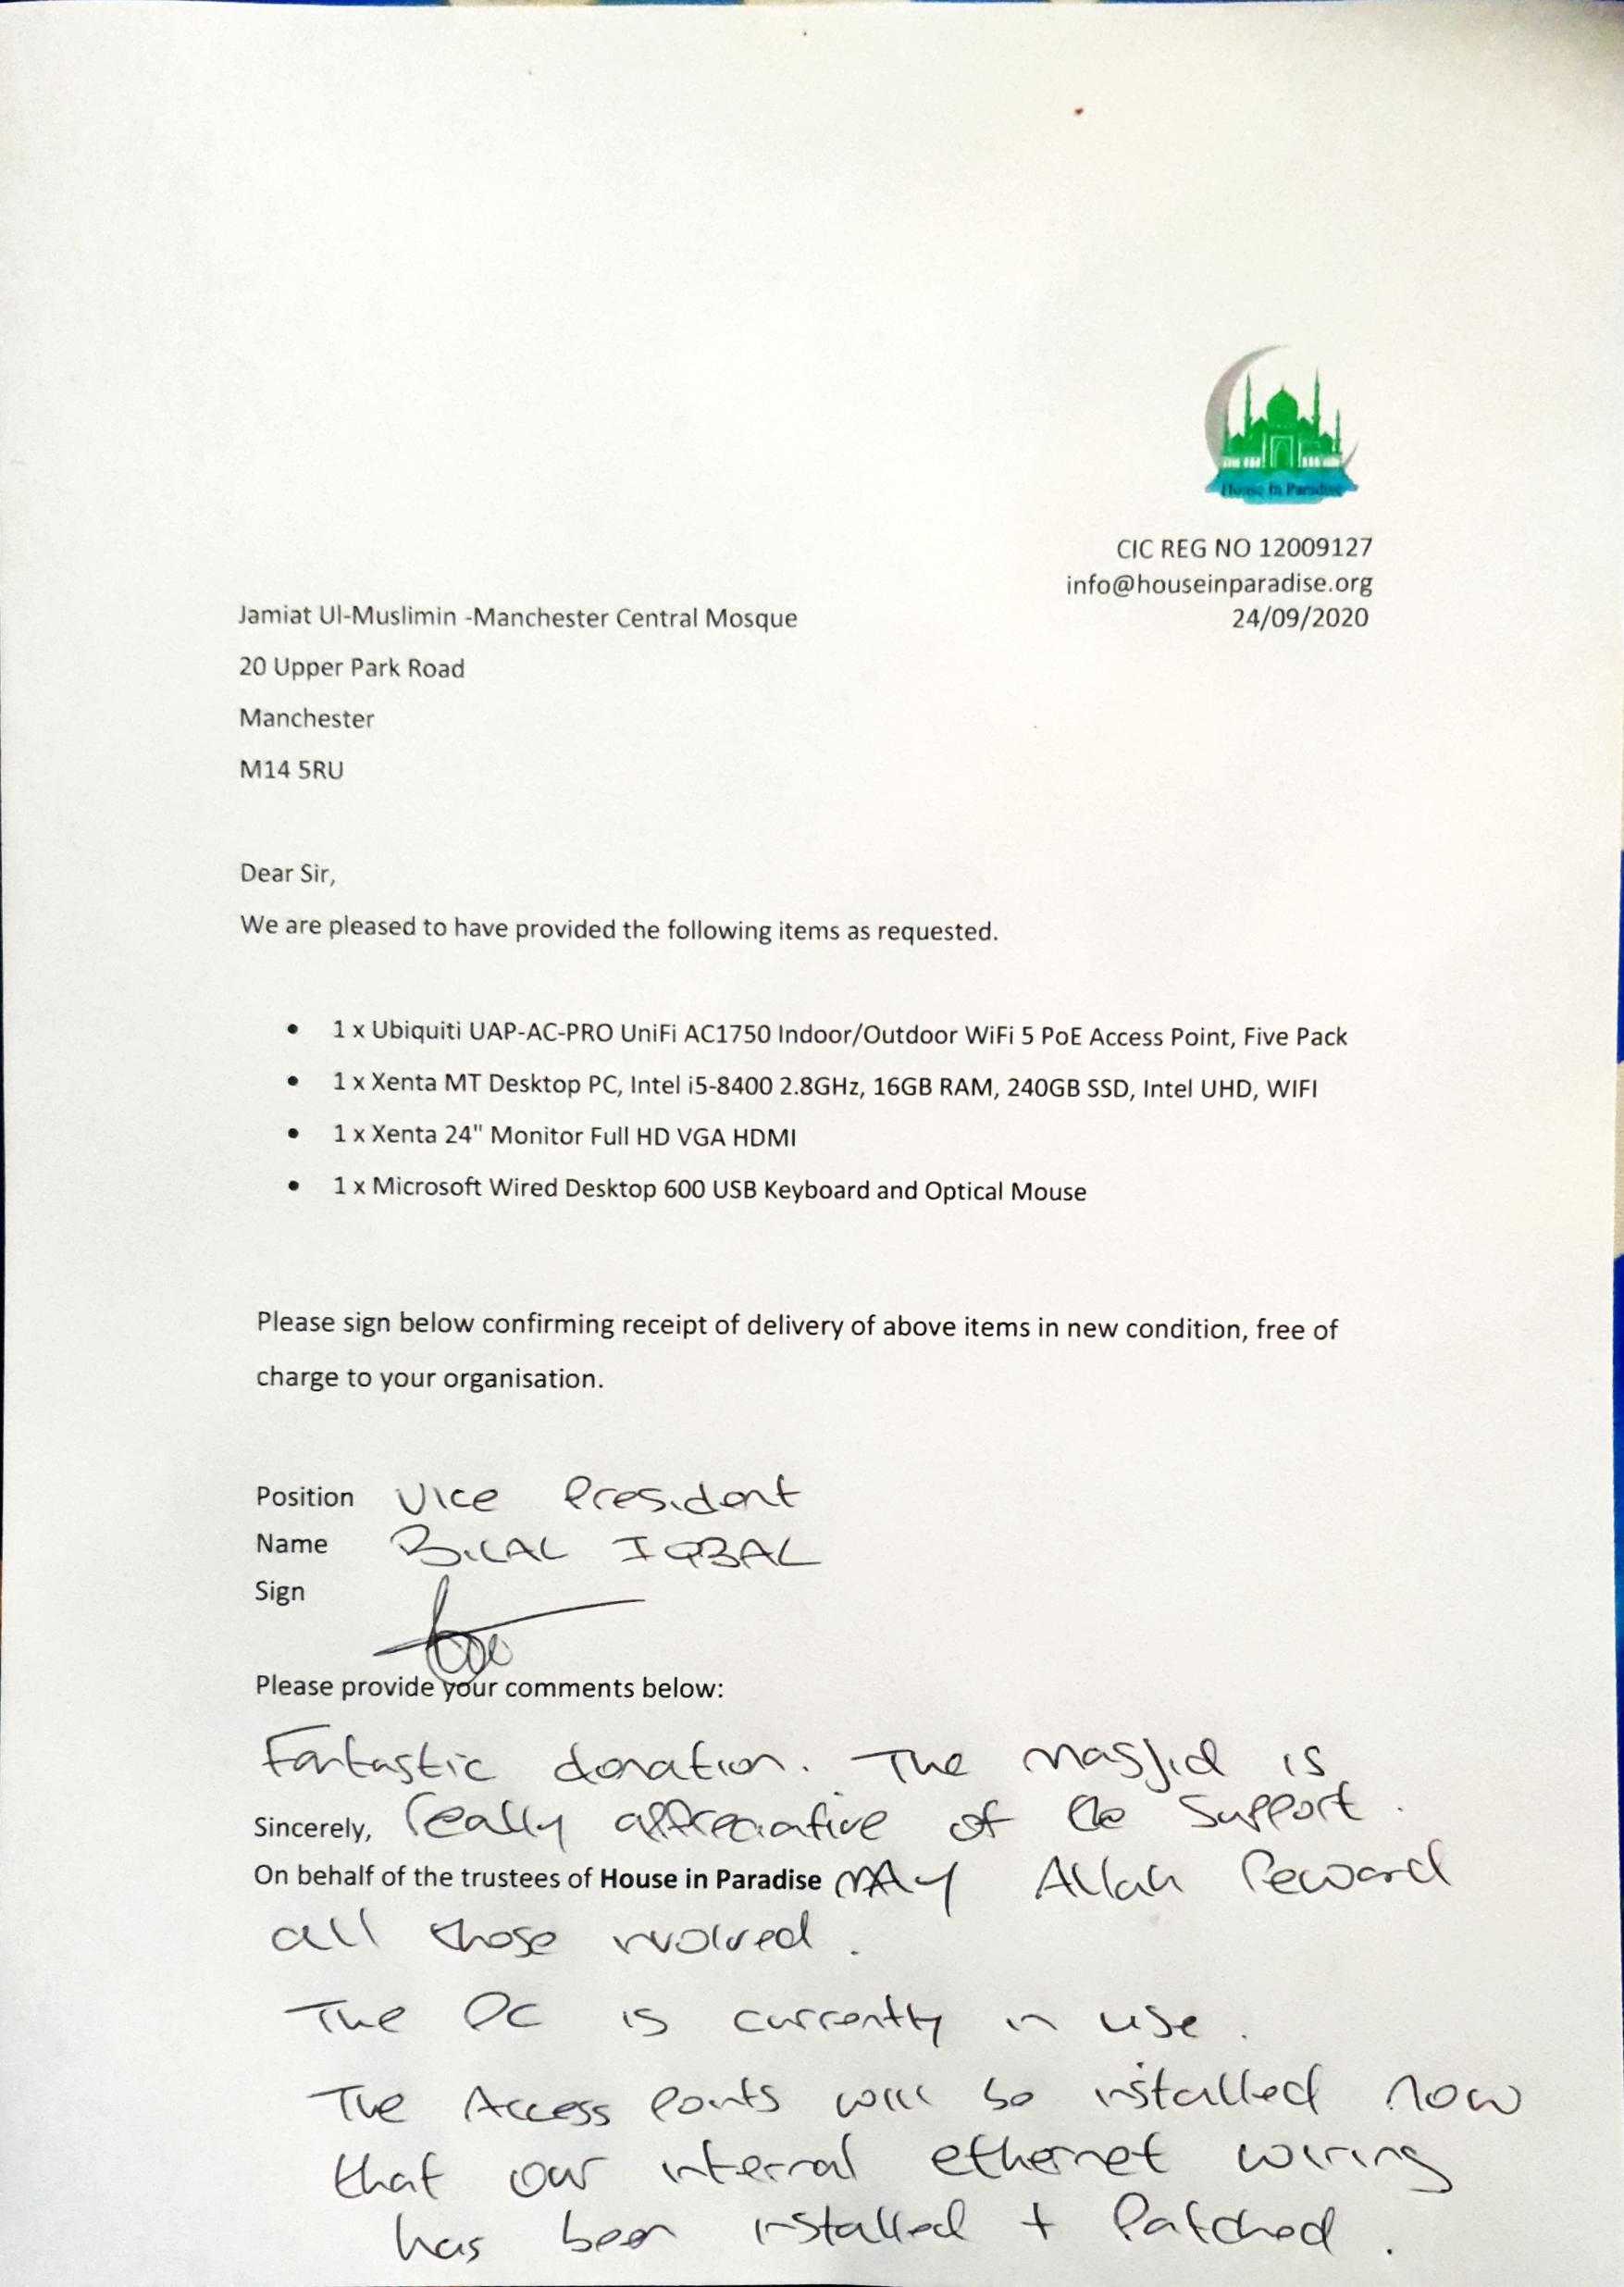 House In Paradise
CIC REG NO 12009127
info@houseinparadise.org
24/09/2020
Jamiat Ul-Muslimin -Manchester Central Mosque
20 Upper Park Road
Manchester
M14 5RU
Dear Sir,
We are pleased to have provided the following items as requested.
• 1 x Ubiquiti UAP-AC-PRO UniFi AC1750 Indoor/Outdoor WiFi 5 PoE Access Point, Five Pack
• 1 x Xenta MT Desktop PC, Intel i5-8400 2.8GHz, 16GB RAM, 240GB SSD, Intel UHD, WIFI
• 1 x Xenta 24" Monitor Full HD VGA HDMI
• 1 x Microsoft Wired Desktop 600 USB Keyboard and Optical Mouse
Please sign below confirming receipt of delivery of above items in new condition, free of
charge to your organisation.
Position Vice President
Name BILAL IQBAL
Sign
Please provide your comments below:
Fantastic donation. The Masjid is
Sincerely, really appreciative of the support.
On behalf of the trustees of House in Paradise MAY Allah Reward
all those involved.
The PC is currently in use.
The Access Points will be installed now
that our internal ethernet wiring
has been installed + Patched.